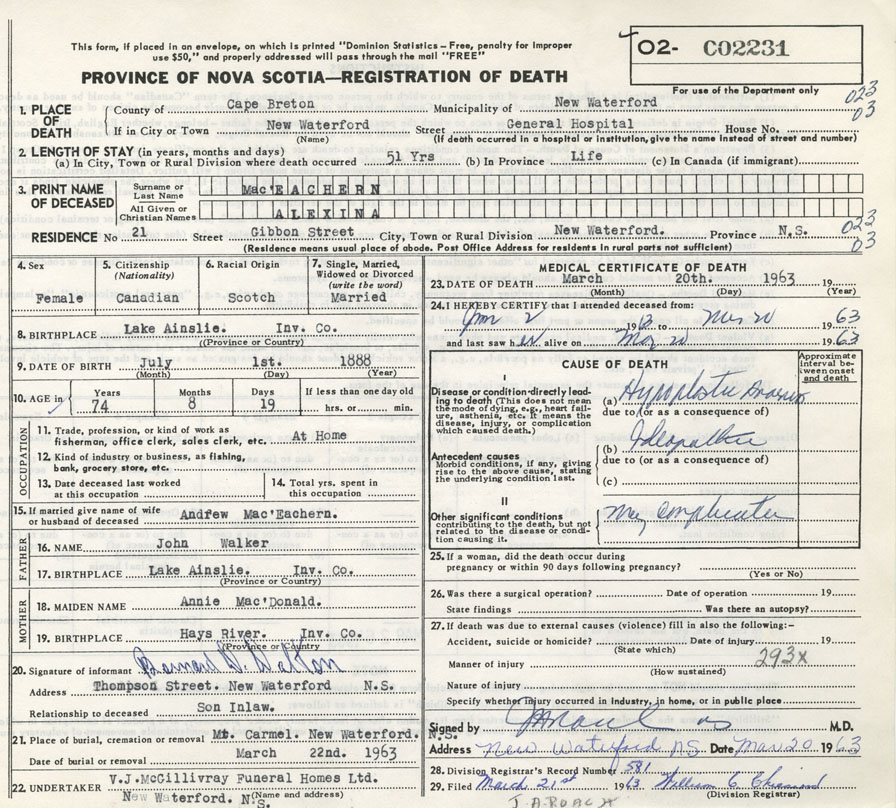 This form, if placed in an envelope, on which is printed "Dominion Statistics – Free, penalty for improper
use $50," and properly addressed will pass through the mail "FREE"
PROVINCE OF NOVA SCOTIA—REGISTRATION OF DEATH
O2- C02231
For use of the Department only
023
03
1. PLACE OF DEATH
County of Cape Breton Municipality of New Waterford
If in City or Town New Waterford Street General Hospital House No.
(Name) (If death occurred in a hospital or institution, give the name instead of street and number)
2. LENGTH OF STAY (in years, months and days)
(a) In City, Town or Rural Division where death occurred 51 Yrs (b) In Province Life (c) In Canada (if immigrant)
3. PRINT NAME OF DECEASED
Surname or Last Name Mac'EACHERN
All Given or Christian Names ALEXINA
RESIDENCE No 21 Street Gibbon Street City, Town or Rural Division New Waterford. Province N.S.
(Residence means usual place of abode. Post Office Address for residents in rural parts not sufficient)
023
03
4. Sex
Female
5. Citizenship
(Nationality)
Canadian
6. Racial Origin
Scotch
7. Single, Married,
Widowed or Divorced
(write the word)
Married
8. BIRTHPLACE Lake Ainslie. Inv. Co.
(Province or Country)
9. DATE OF BIRTH July 1st. 1888
(Month) (Day) (Year)
10. AGE in
Years
74
Months
8
Days
19
If less than one day old
hrs. or min.
OCCUPATION
11. Trade, profession, or kind of work as
fisherman, office clerk, sales clerk, etc. At Home
12. Kind of industry or business, as fishing,
bank, grocery store, etc.
13. Date deceased last worked
at this occupation
14. Total yrs. spent in
this occupation
15. If married give name of wife
or husband of deceased Andfew Mac'Eachern.
FATHER
16. NAME John Walker
17. BIRTHPLACE Lake Ainslie. Inv. Co.
(Province or Country)
MOTHER
18. MAIDEN NAME Annie Mac'Donald.
19. BIRTHPLACE Hays River. Inv. Co.
(Province or Country)
20. Signature of informant Bernard
Address Thompson Street. New Waterford N.S.
Relationship to deceased Son Inlaw.
21. Place of burial, cremation or removal Mt. Carmel. New Waterford. N.S.
Date of burial or removal March 22nd. 1963
22. UNDERTAKER V.J.McGillivray Funeral Homes Ltd.
New Waterford. N.S. (Name and address)
MEDICAL CERTIFICATE OF DEATH
23. DATE OF DEATH March 20th. 1963 19
(Month) (Day) (Year)
24. I HEREBY CERTIFY that I attended deceased from:
2 1963 to Mar 20 1963
and last saw her alive on Mar 20 1963
CAUSE OF DEATH
Approximate
interval be-
tween onset
and death
I
Disease or condition directly lead-
ing to death (This does not mean
the mode of dying, e.g., heart fail-
ure, asthenia, etc. It means the
disease, injury, or complication
which caused death.)
(a)
due to (or as a consequence of)
Antecedent causes
Morbid conditions, if any, giving
rise to the above cause, stating
the underlying condition last.
(b)
due to (or as a consequence of)
(c)
II
Other significant conditions
contributing to the death, but not
related to the disease or condi-
tion causing it.
25. If a woman, did the death occur during
pregnancy or within 90 days following pregnancy?
(Yes or No)
26. Was there a surgical operation? Date of operation 19
State findings Was there an autopsy?
27. If death was due to external causes (violence) fill in also the following:–
Accident, suicide or homicide? Date of injury 19
(State which)
293x
Manner of injury
(How sustained)
Nature of injury
Specify whether injury occurred in industry, in home, or in public place
Signed by M.D.
Address New Waterford NS Date Mar 20 1963
28. Division Registrar's Record Number 581
29. Filed March 21st 1963 William C
(Division Registrar)
J.A.ROACH